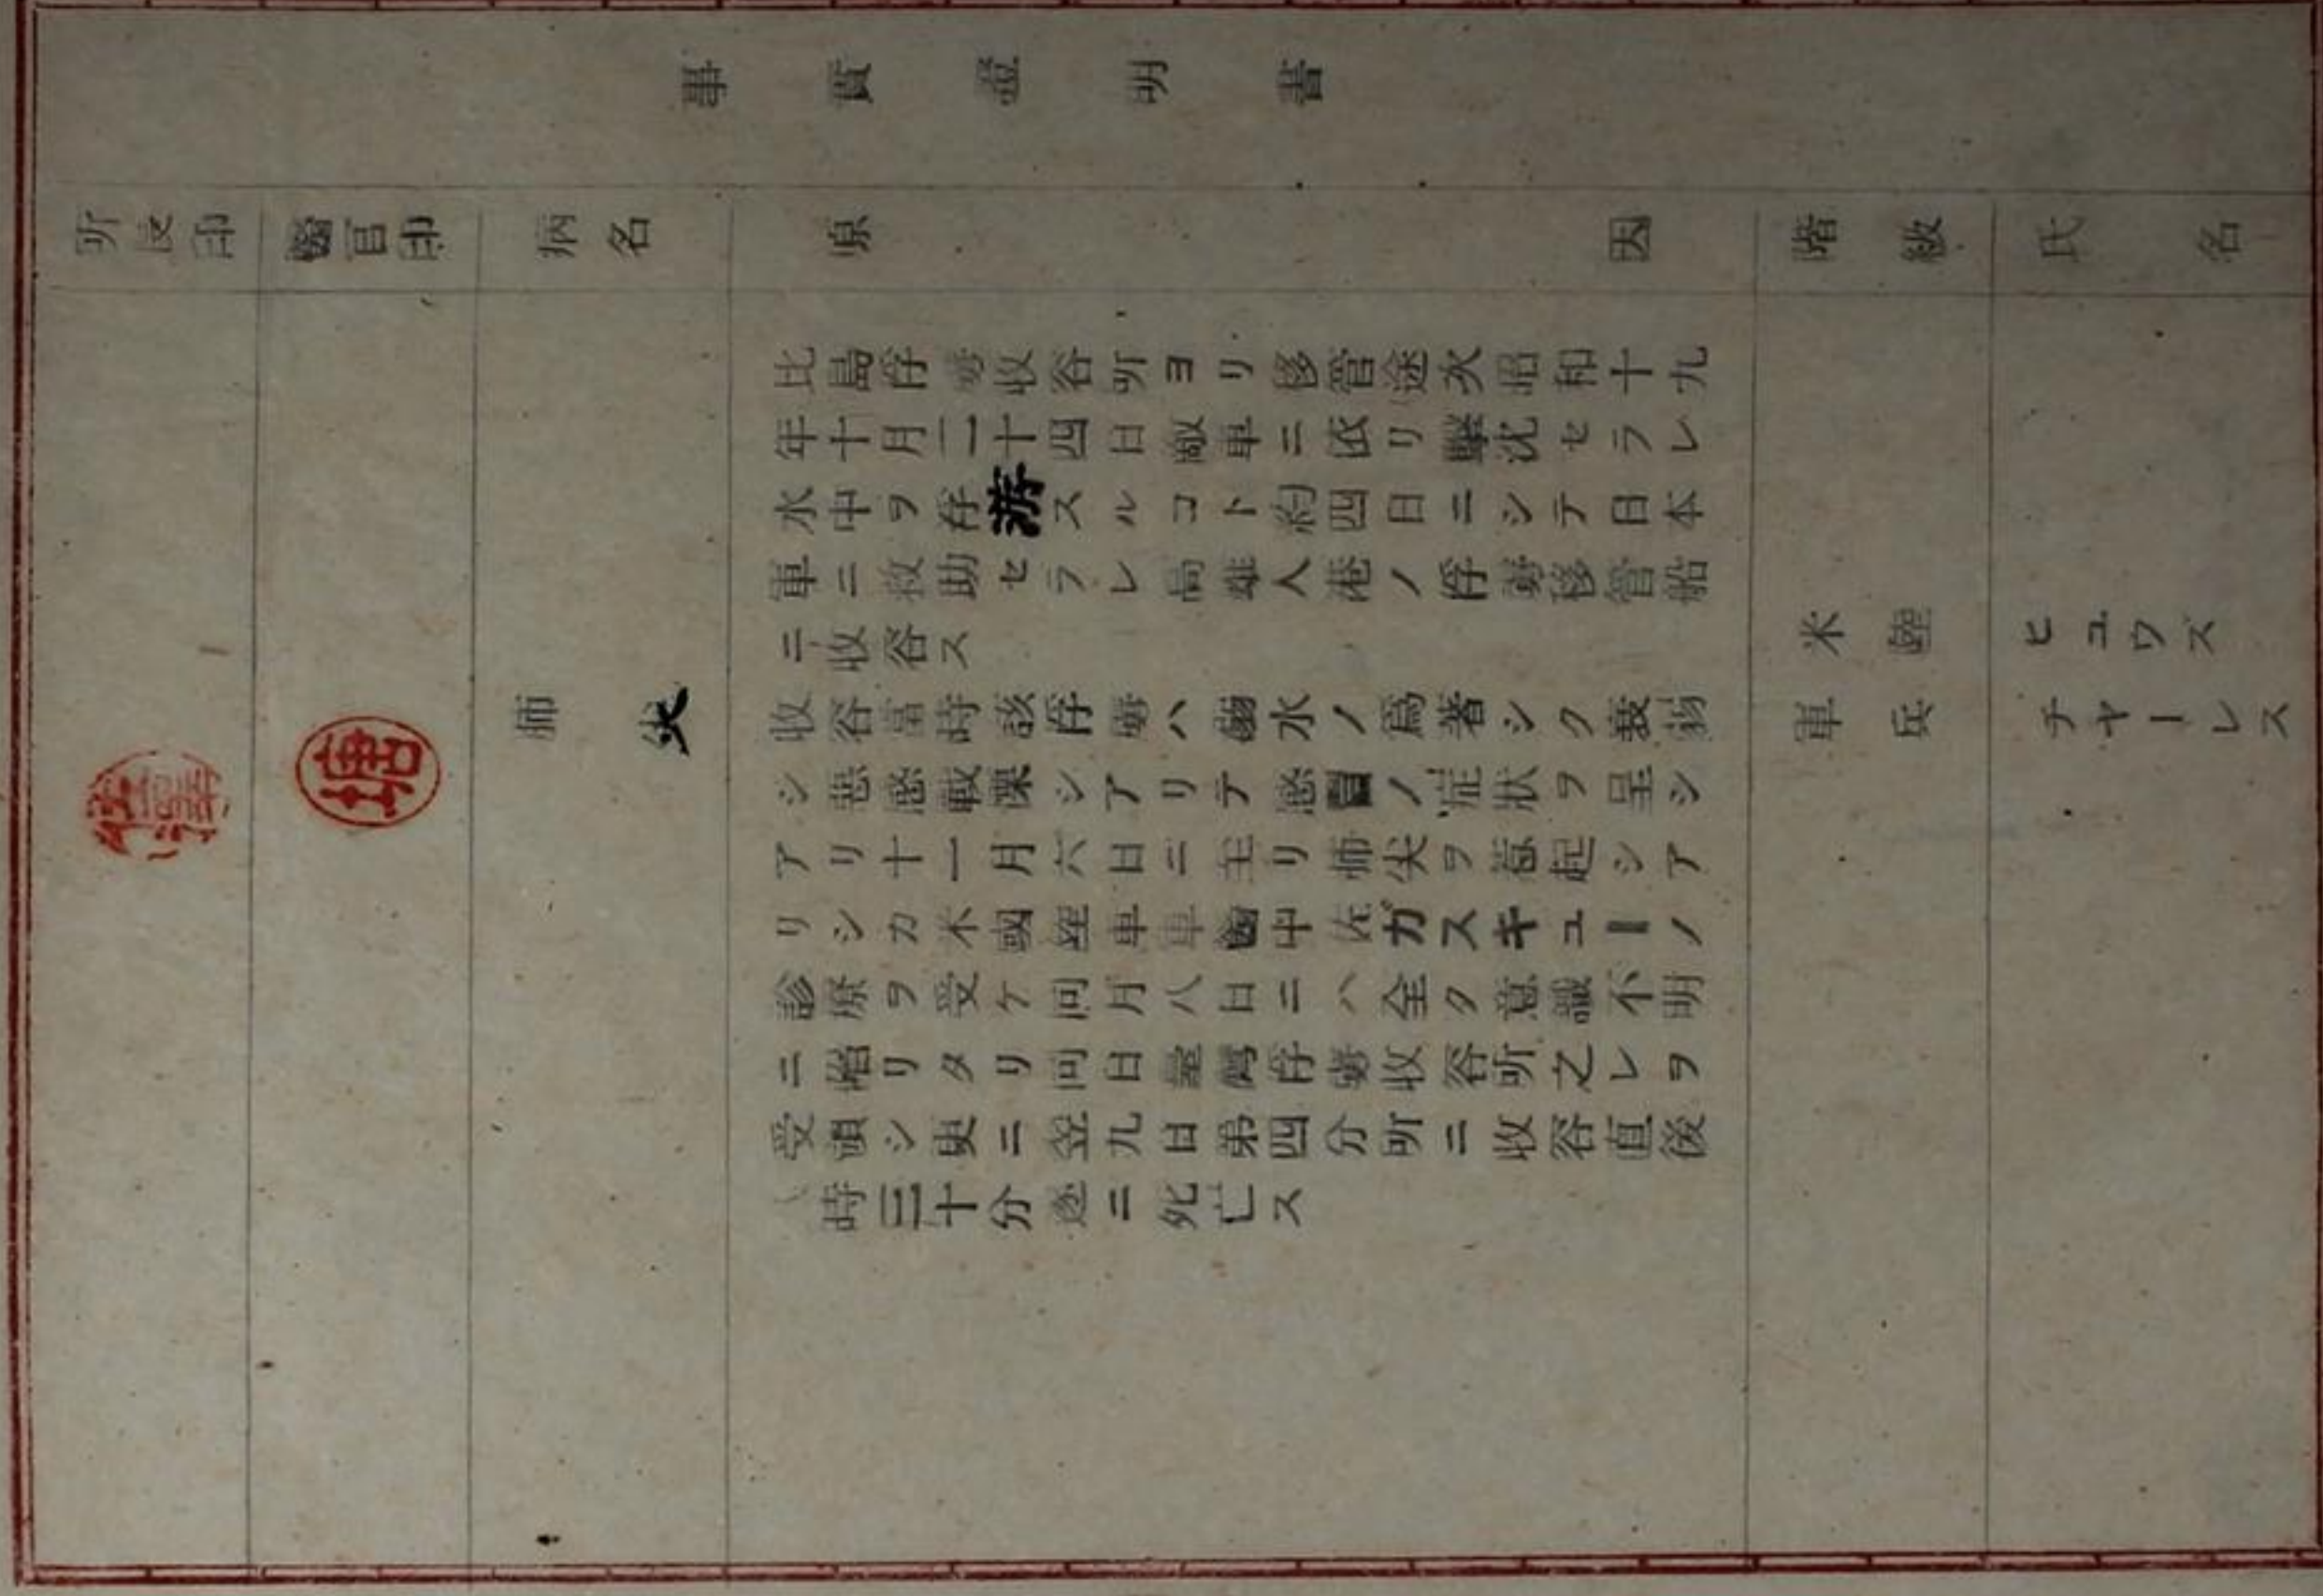 事實證明書
所長印
醫官印
病名
肺炎
原因
比島俘虜收容所ヨリ移管途次昭和十九
年十月二十四日敵軍ニ依リ擊沈セラレ
水中ヲ浮游スルコト約四日ニシテ日本
軍ニ救助セラレ高雄入港ノ俘虜移管船
ニ收容ス
收容當時該俘虜ハ溺水ノ爲著シク衰弱
シ悪感戦慄シアリテ感冒ノ症狀ヲ呈シ
アリ十一月六日ニ至リ肺炎ヲ惹起シア
リシカ米國陸軍軍醫中佐ガスキューノ
診療ヲ受ケ同月八日ニハ全ク意識不明
ニ陷リタリ同日臺灣俘虜收容所之レヲ
受領シ更ニ翌九日第四分所ニ收容直後
時三十分遂ニ死亡ス
階級
米陸
軍兵
氏名
ヒュウズ
チヤーレス